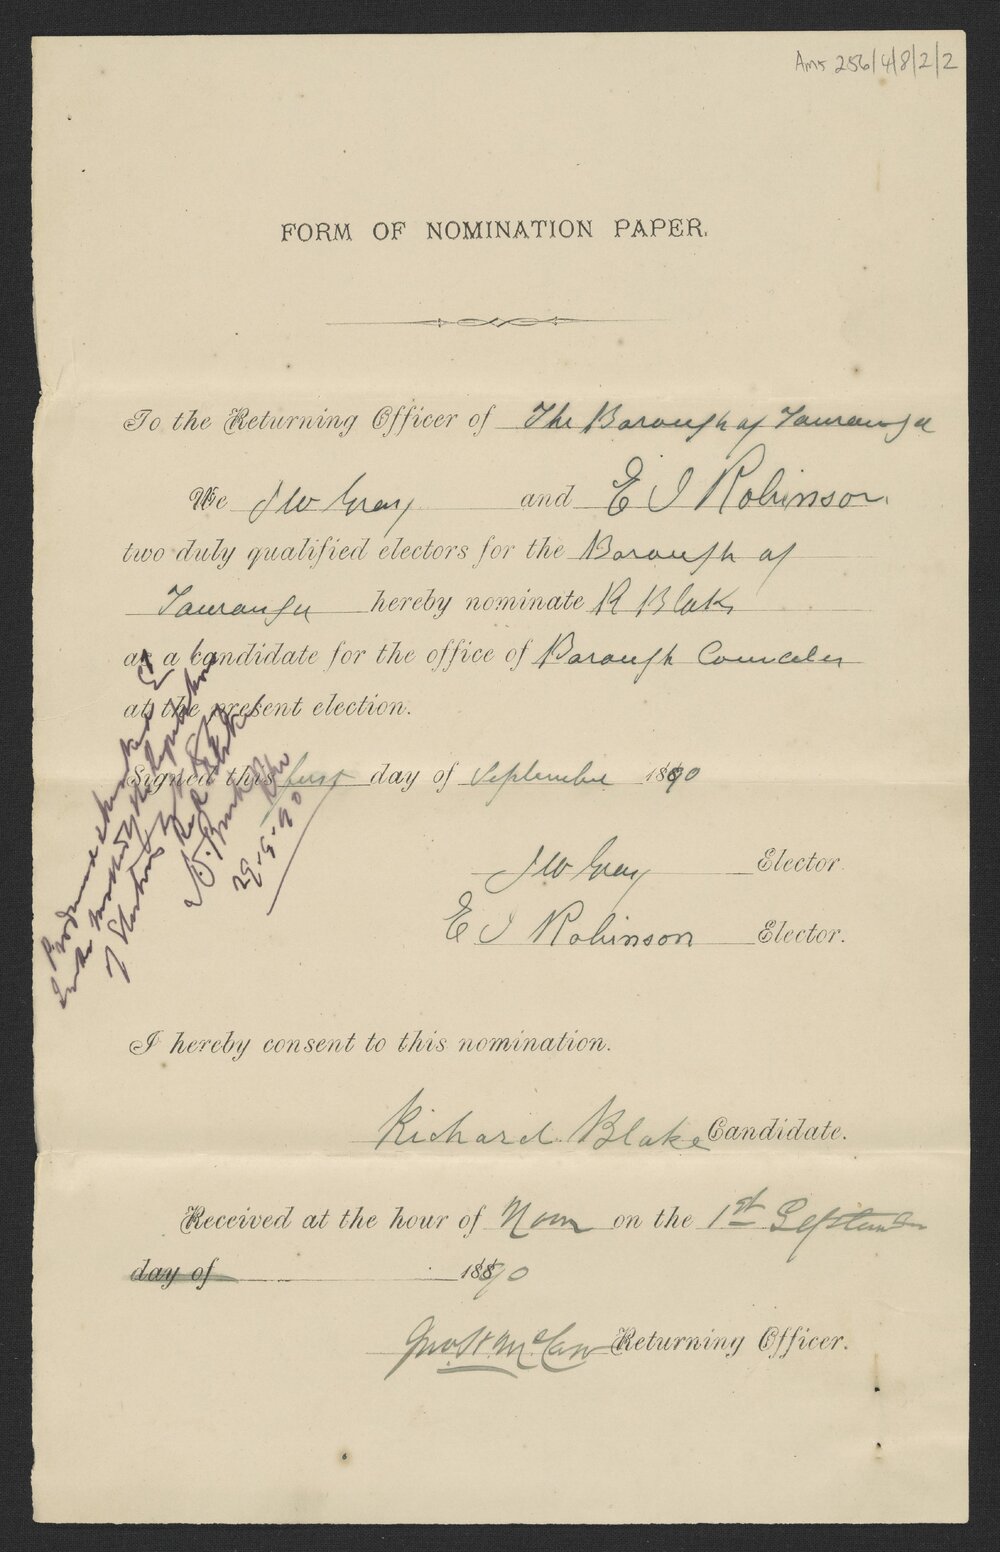 Ams 256/4/8/2/2
FORM OF NOMINATION PAPER.
To the Returning Officer of The Borough of Tauranga
We J W Gray and E I Robinson
two duly qualified electors for the Borough of
Tauranga hereby nominate R Blake
as a candidate for the office of Borough Councillor
at the present election.
Signed this first day of September 1890
J W Gray Elector
E I Robinson Elector.
I hereby consent to this nomination.
Richard Blake Candidate.
Received at the hour of Noon on the 1st September
day of 1890
Returning Officer.
Produced
29.9.90